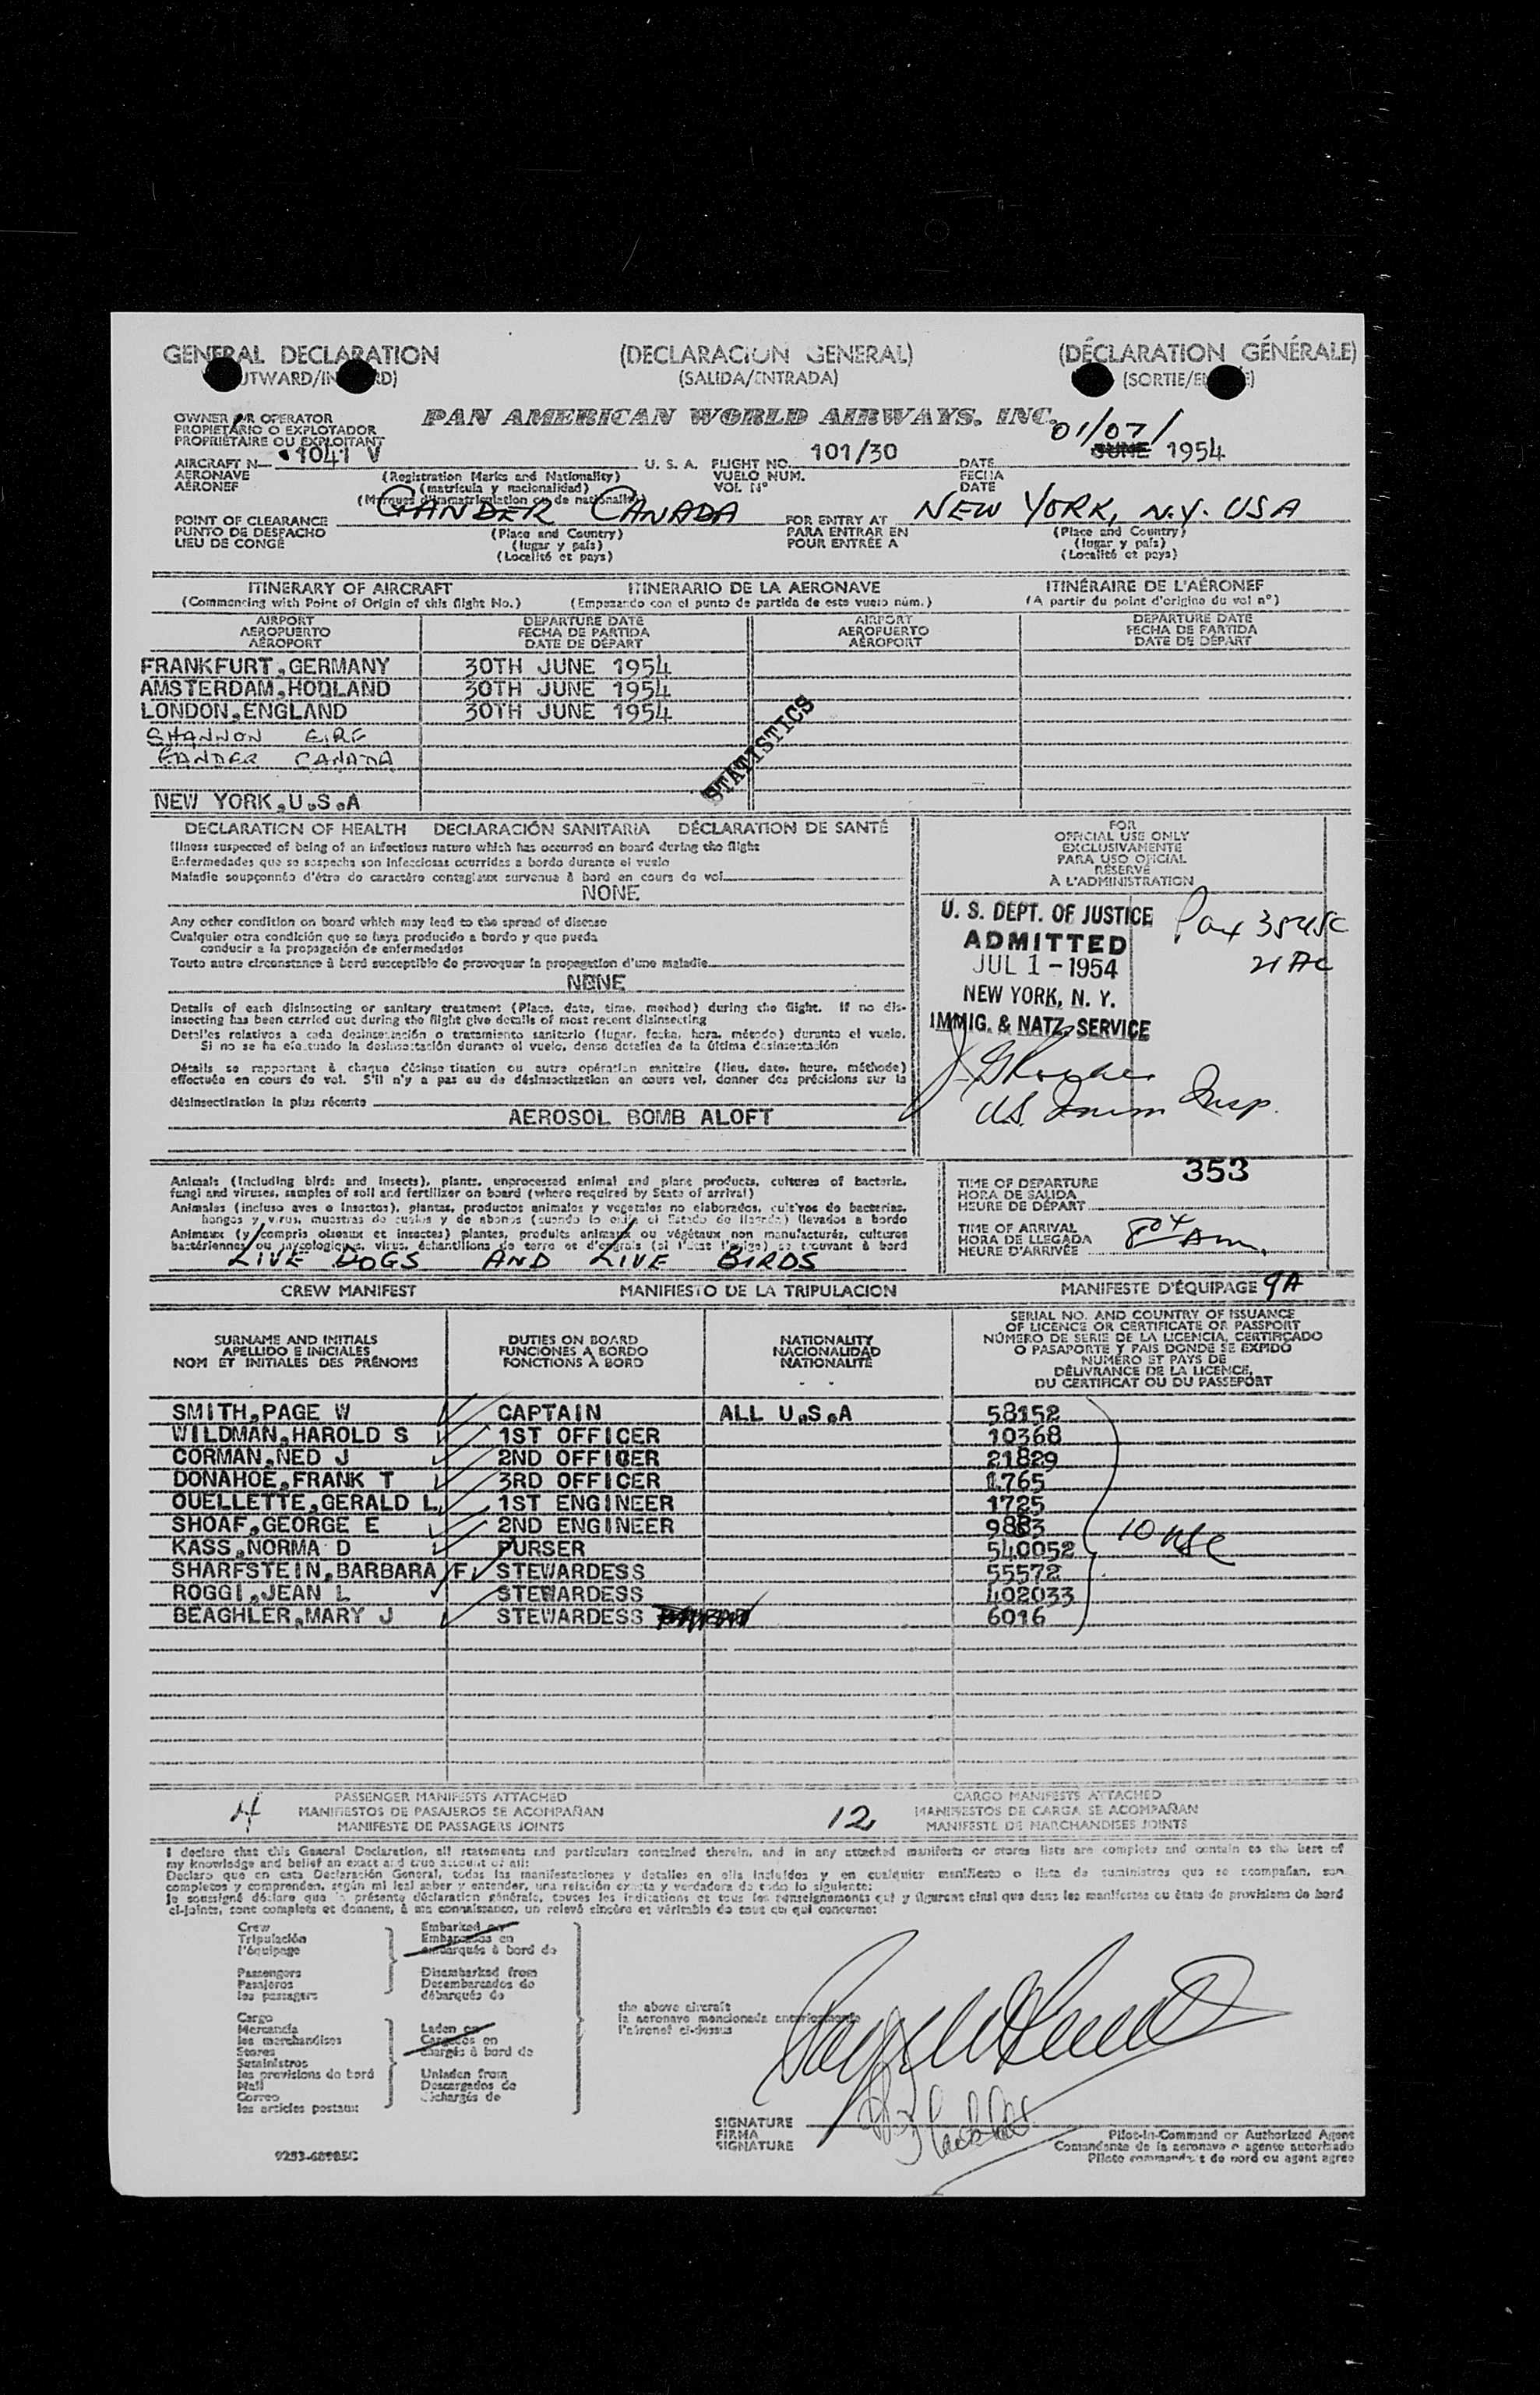 GENERAL DECLARATION (DECLARACION GENERAL) (DÉCLARATION GÉNÉRALE)
(SALIDA/ENTRADA)
PAN AMERICAN WORLD AIRWAYS, INC.
OWNER OR OPERATOR
PROPIETARIO O EXPLOTADOR
PROPRIÉTAIRE OU EXPLOITANT
01/07/
JUNE 1954
AIRCRAFT N 1041 V U. S. A. FLIGHT NO. 101/30 DATE
AERONAVE (Registration Marks and Nationality) VUELO NUM. FECHA
AÉRONEF (matrícula y nacionalidad) VOL N° DATE
POINT OF CLEARANCE GANDER CANADA FOR ENTRY AT NEW YORK, N.Y. USA
PUNTO DE DESPACHO (Place and Country) PARA ENTRAR EN (Place and Country)
LIEU DE CONGÉ (lugar y país) POUR ENTRÉE A (lugar y país)
(Localité et pays) (Localité et pays)
ITINERARY OF AIRCRAFT ITINERARIO DE LA AERONAVE ITINÉRAIRE DE L'AÉRONEF
(Commencing with Point of Origin of this flight No.) (Empezando con el punto de partida de este vuelo núm.) (A partir du point d'origine du vol n°)
AIRPORT DEPARTURE DATE AIRPORT DEPARTURE DATE
AEROPUERTO FECHA DE PARTIDA AEROPUERTO FECHA DE PARTIDA
AÉROPORT DATE DE DÉPART AÉROPORT DATE DE DÉPART
FRANKFURT,GERMANY 30TH JUNE 1954
AMSTERDAM,HOOLAND 30TH JUNE 1954
LONDON,ENGLAND 30TH JUNE 1954
SHANNON EIRE
GANDER CANADA
NEW YORK,U.S.A
STATISTICS
DECLARATION OF HEALTH DECLARACIÓN SANITARIA DÉCLARATION DE SANTÉ
Illness suspected of being of an infectious nature which has occurred on board during the flight
Enfermedades que se sospecha son infecciosas ocurridas a bordo durante el vuelo
Maladie soupçonnée d'être de caractère contagieux survenue à bord en cours de vol
NONE
Any other condition on board which may lead to the spread of disease
Cualquier otra condición que se haya producido a bordo y que pueda
conducir a la propagación de enfermedades
Toute autre circonstance à bord susceptible de provoquer la propagation d'une maladie
NONE
Details of each disinsecting or sanitary treatment (Place, date, time, method) during the flight. If no dis-
insecting has been carried out during the flight give details of most recent disinsecting
Detalles relativos a cada desinsectación o tratamiento sanitario (lugar, fecha, hora, método) durante el vuelo.
Si no se ha efectuado la desinsectación durante el vuelo, dense detalles de la última desinsectación
Détails se rapportant à chaque désinsectisation ou autre opération sanitaire (lieu, date, heure, méthode)
effectuée en cours de vol. S'il n'y a pas eu de désinsectisation en cours vol, donner des précisions sur la
désinsectisation la plus récente
AEROSOL BOMB ALOFT
FOR
OFFICIAL USE ONLY
EXCLUSIVAMENTE
PARA USO OFICIAL
RÉSERVÉ
À L'ADMINISTRATION
U. S. DEPT. OF JUSTICE
ADMITTED
JUL 1 - 1954
NEW YORK, N. Y.
IMMIG. & NATZ. SERVICE
U.S. Immig Insp.
Animals (including birds and insects), plants, unprocessed animal and plant products, cultures of bacteria,
fungi and viruses, samples of soil and fertilizer on board (where required by State of arrival)
Animales (incluso aves e insectos), plantas, productos animales y vegetales no elaborados, cultivos de bacterias,
hongos y virus, muestras de suelos y de abonos (cuando lo exija el Estado de llegada) llevados a bordo
Animaux (y compris oiseaux et insectes) plantes, produits animaux ou végétaux non manufacturés, cultures
bactériennes ou mycologiques, virus, échantillons de terre et d'engrais (si l'état l'exige) se trouvant à bord
LIVE DOGS AND LIVE BIRDS
353
TIME OF DEPARTURE
HORA DE SALIDA
HEURE DE DÉPART
TIME OF ARRIVAL
HORA DE LLEGADA
HEURE D'ARRIVÉE 804 Am.
CREW MANIFEST MANIFIESTO DE LA TRIPULACION MANIFESTE D'ÉQUIPAGE 9A
SURNAME AND INITIALS DUTIES ON BOARD NATIONALITY
APELLIDO E INICIALES FUNCIONES A BORDO NACIONALIDAD
NOM ET INITIALES DES PRÉNOMS FONCTIONS À BORD NATIONALITÉ
SERIAL NO. AND COUNTRY OF ISSUANCE
OF LICENCE OR CERTIFICATE OR PASSPORT
NÚMERO DE SERIE DE LA LICENCIA, CERTIFICADO
O PASAPORTE Y PAIS DONDE SE EXPIDO
NUMÉRO ET PAYS DE
DÉLIVRANCE DE LA LICENCE,
DU CERTIFICAT OU DU PASSEPORT
SMITH,PAGE W CAPTAIN ALL U.S.A 58152
WILDMAN,HAROLD S 1ST OFFICER 10368
CORMAN,NED J 2ND OFFICER 21829
DONAHOE,FRANK T 3RD OFFICER 1765
OUELLETTE,GERALD L 1ST ENGINEER 1725
SHOAF,GEORGE E 2ND ENGINEER 9883
KASS,NORMA D PURSER 540052
SHARFSTEIN,BARBARA F STEWARDESS 55572
ROGGI,JEAN L STEWARDESS 402033
BEAGHLER,MARY J STEWARDESS 6016
10 usc
4 PASSENGER MANIFESTS ATTACHED 12 CARGO MANIFESTS ATTACHED
MANIFIESTOS DE PASAJEROS SE ACOMPAÑAN MANIFIESTOS DE CARGA SE ACOMPAÑAN
MANIFESTE DE PASSAGERS JOINTS MANIFESTE DE MARCHANDISES JOINTS
I declare that this General Declaration, all statements and particulars contained therein, and in any attached manifests or stores lists are complete and contain to the best of
my knowledge and belief an exact and true account of all:
Declaro que en esta Declaración General, todas las manifestaciones y detalles en ella incluídos y en cualquier manifiesto o lista de suministros que se acompañan, son
completos y comprenden, según mi leal saber y entender, una relación exacta y verdadera de todo lo siguiente:
Je soussigné déclare que la présente déclaration générale, toutes les indications et tous les renseignements qui y figurent ainsi que dans les manifestes ou états de provisions de bord
ci-joints, sont complets et donnent, à ma connaissance, un relevé sincère et véritable de tout ce qui concerne:
Crew Embarked on
Tripulación Embarcados en
l'équipage embarqués à bord de
Passengers Disembarked from
Pasajeros Desembarcados de
les passagers débarqués de
the above aircraft
la aeronave mencionada anteriormente
l'aéronef ci-dessus
Cargo
Mercancía Laden on
les marchandises Cargados en
Stores chargés à bord de
Suministros
les provisions de bord Unladen from
Mail Descargados de
Correo déchargés de
les articles postaux
SIGNATURE
FIRMA
SIGNATURE
Pilot-in-Command or Authorized Agent
Comandante de la aeronave o agente autorizado
Pilote commandant de bord ou agent agréé